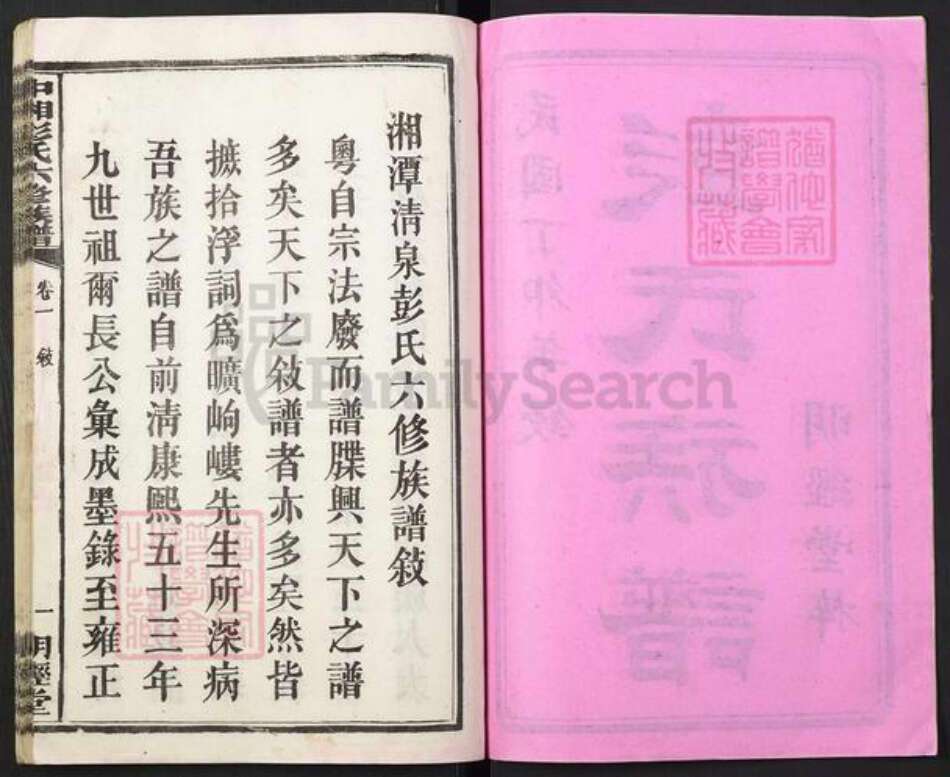 湘潭淸泉彭氏六修族譜敍
粵自宗法廢而譜牒興天下之譜
多矣天下之敍譜者亦多矣然皆
摭拾浮詞爲曠岣嶁先生所深病
吾族之譜自前淸康熙五十三年
九世祖爾長公彙成墨錄至雍正
中湘彭氏六修族譜
卷一
敍
一
明經堂
FamilySearch
氏族譜
民國丁卯年
明經堂梓
譜學會
收藏